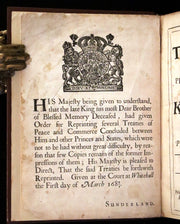 HIS Majesty being given to understand,
that the late King his most Dear Brother
of Blessed Memory Deceased, had given
Order for Reprinting several Treaties of
Peace and Commerce Concluded between
Him and other Princes and States, which were
not to be had without great difficulty, by reason
that few Copies remain of the former Impressions
of them; His Majesty is pleased to
Direct, That the said Treaties be forthwith
Reprinted. Given at the Court at Whitehall
the First day of March 1685.
SUNDERLAND.
T
K